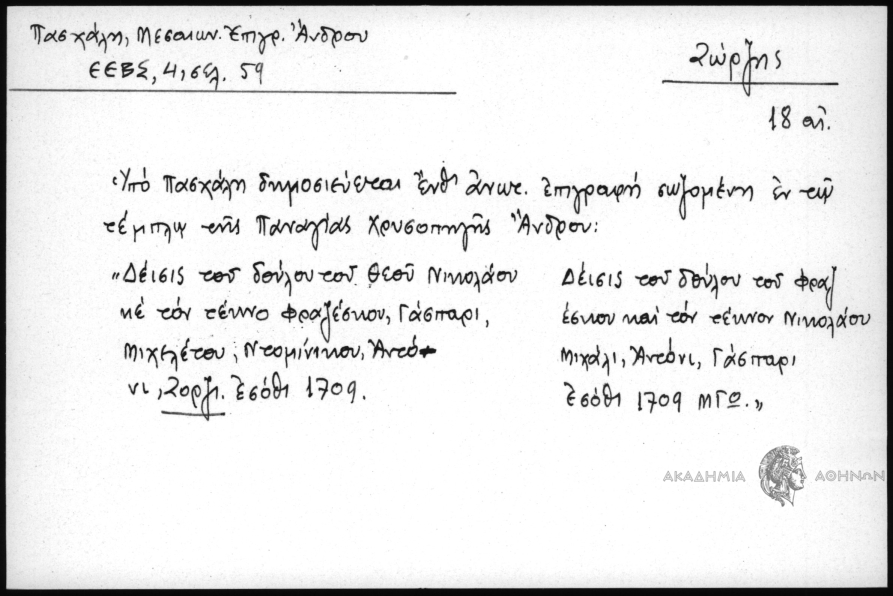 Πασχάλη, Μεσαιων. Ἐπιγρ. Ἄνδρου
ΕΕΒΣ, 4, σελ. 59
Ζώρζης
18 αἰ.
Ὑπό Πασχάλη δημοσιεύεται ἔνθ' ἀνωτ. ἐπιγραφή σωζομένη ἐν τῷ
τέμπλῳ τῆς Παναγίας Χρυσοπηγῆς Ἄνδρου:
„Δέισις τοῦ δούλου τοῦ Θεοῦ Νικολάου
κέ τόν τέκνο Φραζέσκου, Γάσπαρι,
Μιχελέτου, Ντομίνικου, Ἀντό
νι, Ζορζι. Ἐσόθι 1709.
Δέισις τοῦ δούλου τοῦ Φραζ
έσκου καί τόν τέκνον Νικολάου
Μιχάλι, Ἀντόνι, Γάσπαρι
Ἐσόθι 1709 ΜΓΩ.„
ΑΚΑΔΗΜΙΑ ΑΘΗΝΩΝ